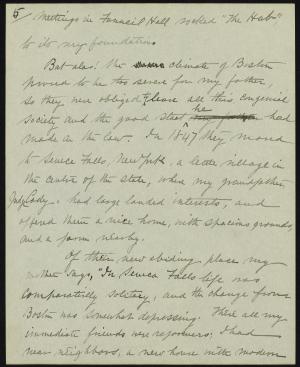 5
meetings in Faneuil Hall rocked "The Hub"
to its very foundations
But alas! the climate of Boston
proved to be too severe for my father,
so they were obliged to leave all this congenial
society and the good start he had
made in the law. In 1847 they moved
to Seneca Falls, New York, a little village in
the centre of the state, where my grandfather,
Judge Cady, had large landed interests, and
offered them a nice home, with spacious grounds,
and a farm nearby.
Of their new abiding place my
mother says, "In Seneca Falls life was
comparatively solitary, and the change from
Boston was somewhat depressing. There all my
immediate friends were reformers; I had
near neighbors, a new house with modern